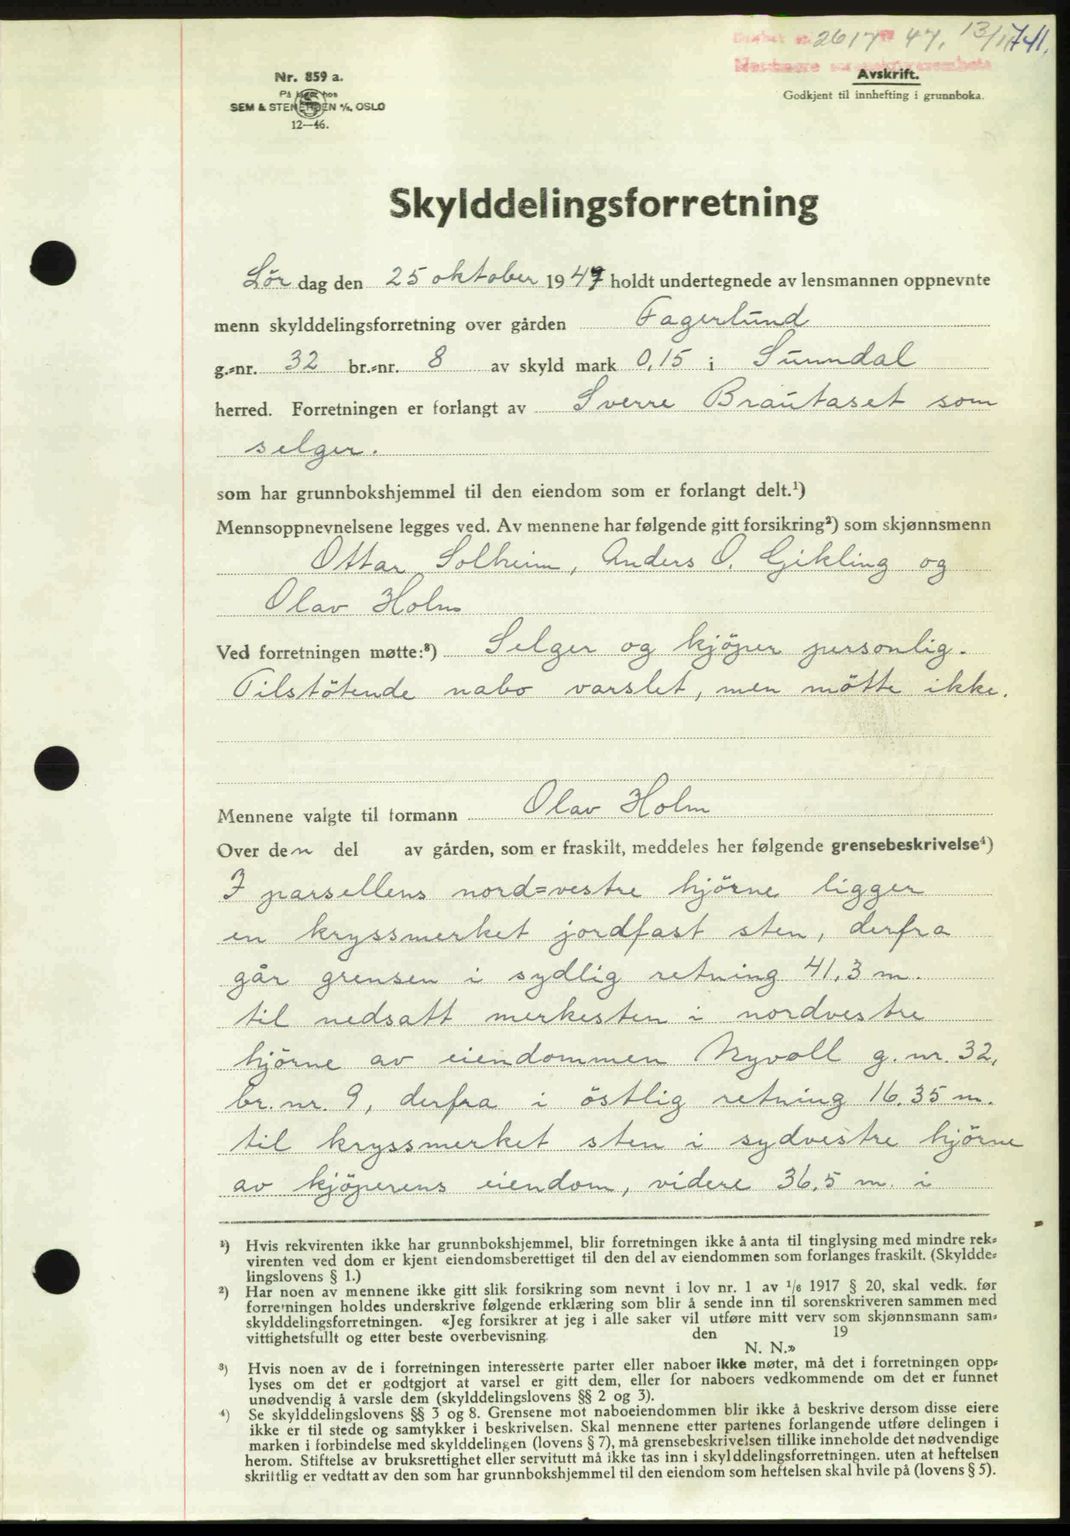 2617 47, 13/11 741.
Nordmøre sorenskriverembete
Nr. 859 a.
På lager hos
SEM & STENERSEN A/S, OSLO
12—46.
Avskrift.
Godkjent til innhefting i grunnboka.
Skylddelingsforretning
Lör dag den 25 oktober 1947 holdt undertegnede av lensmannen oppnevnte
menn skylddelingsforretning over gården Fagerlund
g.-nr. 32 br.-nr. 8 av skyld mark 0,15 i Sunndal
herred. Forretningen er forlangt av Sverre Brautaset som
selger.
som har grunnbokshjemmel til den eiendom som er forlangt delt.¹)
Mennsoppnevnelsene legges ved. Av mennene har følgende gitt forsikring²) som skjønnsmenn
Ottar Solheim, Anders O. Gikling og
Olav Holm
Ved forretningen møtte:³) Selger og kjöper personlig.
Tilstötende nabo varslet, men mötte ikke.
Mennene valgte til formann Olav Holm
Over den del av gården, som er fraskilt, meddeles her følgende grensebeskrivelse⁴)
I parsellens nord=vestre hjörne ligger
en kryssmerket jordfast sten, derfra
går grensen i sydlig retning 41,3 m.
til nedsatt merkesten i nordvestre
hjörne av eiendommen Nyvoll g. nr. 32,
br. nr. 9, derfra i östlig retning 16.35 m.
til kryssmerket sten i sydvestre hjörne
av kjöperens eiendom, videre 36,5 m. i
¹) Hvis rekvirenten ikke har grunnbokshjemmel, blir forretningen ikke å anta til tinglysing med mindre rek-
virenten ved dom er kjent eiendomsberettiget til den del av eiendommen som forlanges fraskilt. (Skyldde-
lingslovens § 1.)
²) Har noen av mennene ikke gitt slik forsikring som nevnt i lov nr. 1 av 1/6 1917 § 20, skal vedk. før
forretningen holdes underskrive følgende erklæring som blir å sende inn til sorenskriveren sammen med
skylddelingsforretningen. «Jeg forsikrer at jeg i alle saker vil utføre mitt verv som skjønnsmann sam-
vittighetsfullt og etter beste overbevisning. den 19
N. N.»
³) Hvis noen av de i forretningen interesserte parter eller naboer ikke møter, må det i forretningen opp-
lyses om det er godtgjort at varsel er gitt dem, eller for naboers vedkommende om det er funnet
unødvendig å varsle dem (skylddelingslovens §§ 2 og 3).
⁴) Se skylddelingslovens §§ 3 og 8. Grensene mot naboeiendommen blir ikke å beskrive dersom disse eiere
ikke er til stede og samtykker i beskrivelsen. Skal mennene etter partenes forlangende utføre delingen i
marken i forbindelse med skylddelingen (lovens § 7), må grensebeskrivelsen tillike inneholde det nødvendige
herom. Stiftelse av bruksrettighet eller servitutt må ikke tas inn i skylddelingsforretningen. uten at heftelsen
skriftlig er vedtatt av den som har grunnbokshjemmel til den eiendom som heftelsen skal hvile på (lovens § 5).